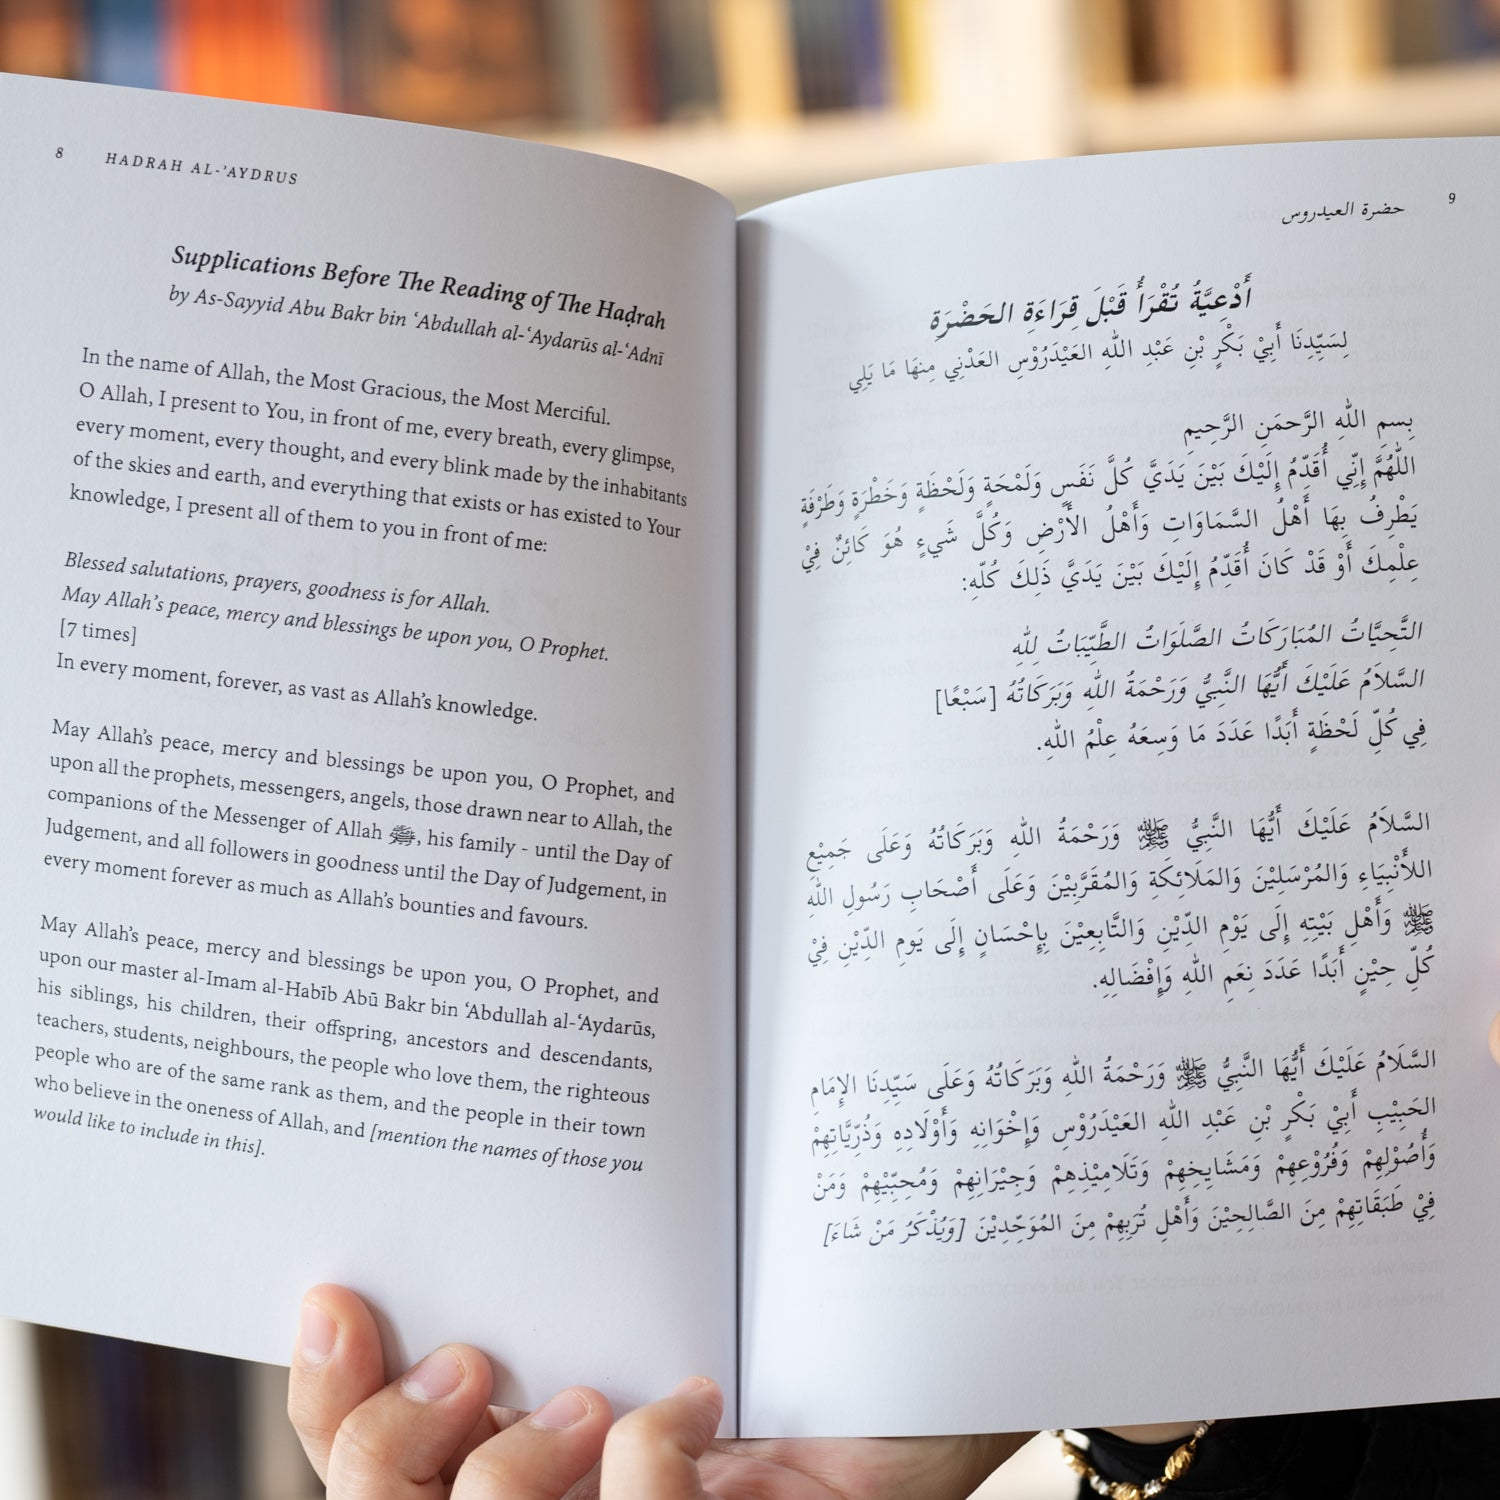 8 HADRAH AL-'AYDRUS
Supplications Before The Reading of The Haḍrah
by As-Sayyid Abu Bakr bin ‘Abdullah al-‘Aydarūs al-‘Adnī
In the name of Allah, the Most Gracious, the Most Merciful.
O Allah, I present to You, in front of me, every breath, every glimpse,
every moment, every thought, and every blink made by the inhabitants
of the skies and earth, and everything that exists or has existed to Your
knowledge, I present all of them to you in front of me:
Blessed salutations, prayers, goodness is for Allah.
May Allah’s peace, mercy and blessings be upon you, O Prophet.
[7 times]
In every moment, forever, as vast as Allah’s knowledge.
May Allah’s peace, mercy and blessings be upon you, O Prophet, and
upon all the prophets, messengers, angels, those drawn near to Allah, the
companions of the Messenger of Allah ﷺ, his family - until the Day of
Judgement, and all followers in goodness until the Day of Judgement, in
every moment forever as much as Allah’s bounties and favours.
May Allah’s peace, mercy and blessings be upon you, O Prophet, and
upon our master al-Imam al-Habīb Abū Bakr bin ‘Abdullah al-‘Aydarūs,
his siblings, his children, their offspring, ancestors and descendants,
teachers, students, neighbours, the people who love them, the righteous
people who are of the same rank as them, and the people in their town
who believe in the oneness of Allah, and [mention the names of those you
would like to include in this].
حضرة العيدروس 9
أَدْعِيَّةُ تُقْرَأُ قَبْلَ قِرَاءَةِ الحَضْرَةِ
لِسَيِّدِنَا أَبِيْ بَكْرٍ بْنِ عَبْدِ اللهِ العَيْدَرُوْسِ العَدْنِي مِنهَا مَا يَلِي
بِسمِ اللهِ الرَّحمَنِ الرَّحِيمِ
اللّهُمَّ إِنِّي أُقَدِّمُ إِلَيْكَ بَيْنَ يَدَيَّ كُلَّ نَفَسٍ وَلَمْحَةٍ وَلَحْظَةٍ وَخَطْرَةٍ وَطَرْفَةٍ
يَطْرِفُ بِهَا أَهْلُ السَّمَاوَاتِ وَأَهْلُ الأَرْضِ وَكُلَّ شَيءٍ هُوَ كَائِنٌ فِيْ
عِلْمِكَ أَوْ قَدْ كَانَ أُقَدِّمُ إِلَيْكَ بَيْنَ يَدَيَّ ذَلِكَ كُلّهِ:
التَّحِيَّاتُ المُبَارَكَاتُ الصَّلَوَاتُ الطَّيِّبَاتُ لِلهِ
السَّلَامُ عَلَيْكَ أَيُّهَا النَّبِيُّ وَرَحْمَةُ اللهِ وَبَرَكَاتُهُ [سَبْعًا]
فِي كُلِّ لَحْظَةٍ أَبَدًا عَدَدَ مَا وَسِعَهُ عِلْمُ اللهِ.
السَّلَامُ عَلَيْكَ أَيُّهَا النَّبِيُّ ﷺ وَرَحْمَةُ اللهِ وَبَرَكَاتُهُ وَعَلَى جَمِيْعِ
اللأَنْبِيَاءِ وَالمُرْسَلِيْنَ وَالمَلَائِكَةِ وَالمُقَرَّبِيْنَ وَعَلَى أَصْحَابِ رَسُولِ اللهِ
ﷺ وَأَهْلِ بَيْتِهِ إِلَى يَوْمِ الدِّيْنِ وَالتَّابِعِيْنَ بِإِحْسَانٍ إِلَى يَومِ الدِّيْنِ فِيْ
كُلِّ حِيْنٍ أَبَدًا عَدَدَ نِعَمِ اللهِ وَإِفْضَالِهِ.
السَّلَامُ عَلَيْكَ أَيُّهَا النَّبِيُّ ﷺ وَرَحْمَةُ اللهِ وَبَرَكَاتُهُ وَعَلَى سَيِّدِنَا الإِمَامِ
الحَبِيْبِ أَبِيْ بَكْرٍ بْنِ عَبْدِ اللهِ العَيْدَرُوْسِ وَإِخْوَانِهِ وَأَوْلَادِهِ وَذُرِّيَّاتِهِمْ
وَأُصُوْلِهِمْ وَفُرُوْعِهِمْ وَمَشَايِخِهِمْ وَتَلَامِيْذِهِمْ وَجِيْرَانِهِمْ وَمُحِبِّيْهِمْ وَمَنْ
فِيْ طَبَقَاتِهِمْ مِنَ الصَّالِحِيْنَ وَأَهْلِ تُرَبِهِمْ مِنَ المُوَحِّدِيْنَ [وَيُذْكَرُ مَنْ شَاءَ]